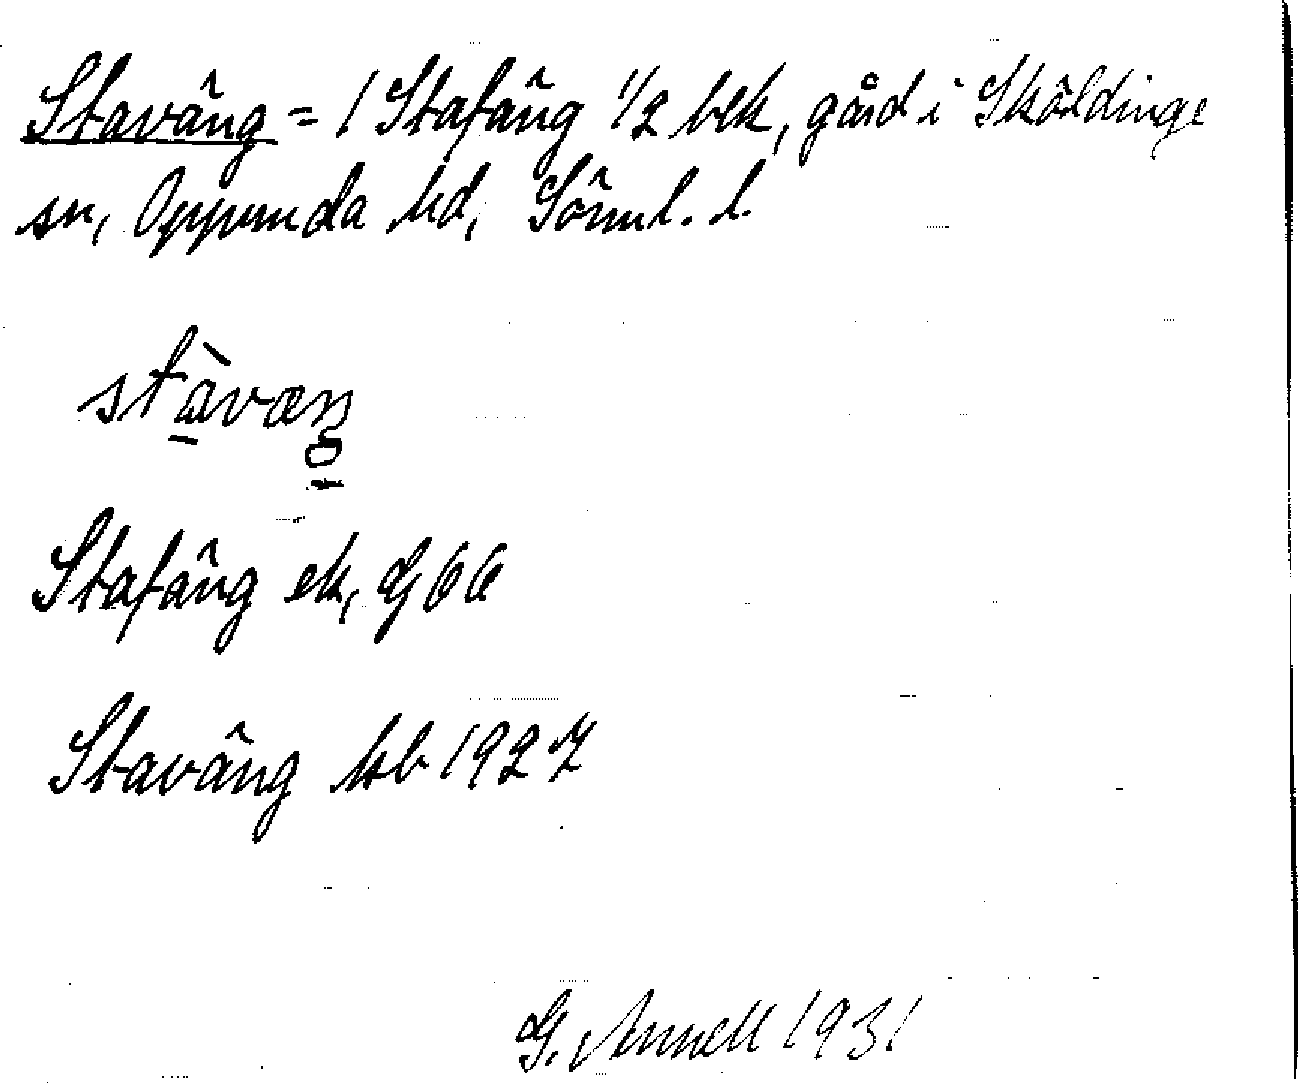 Staväng = 1 Stafäng 1/2 blk, gård i Sköldinge
sn, Oppunda hd, Söml. l.
stàvæŋ
Stafäng ek, Gg 66
Staväng kb 1927
G. Annell 1931